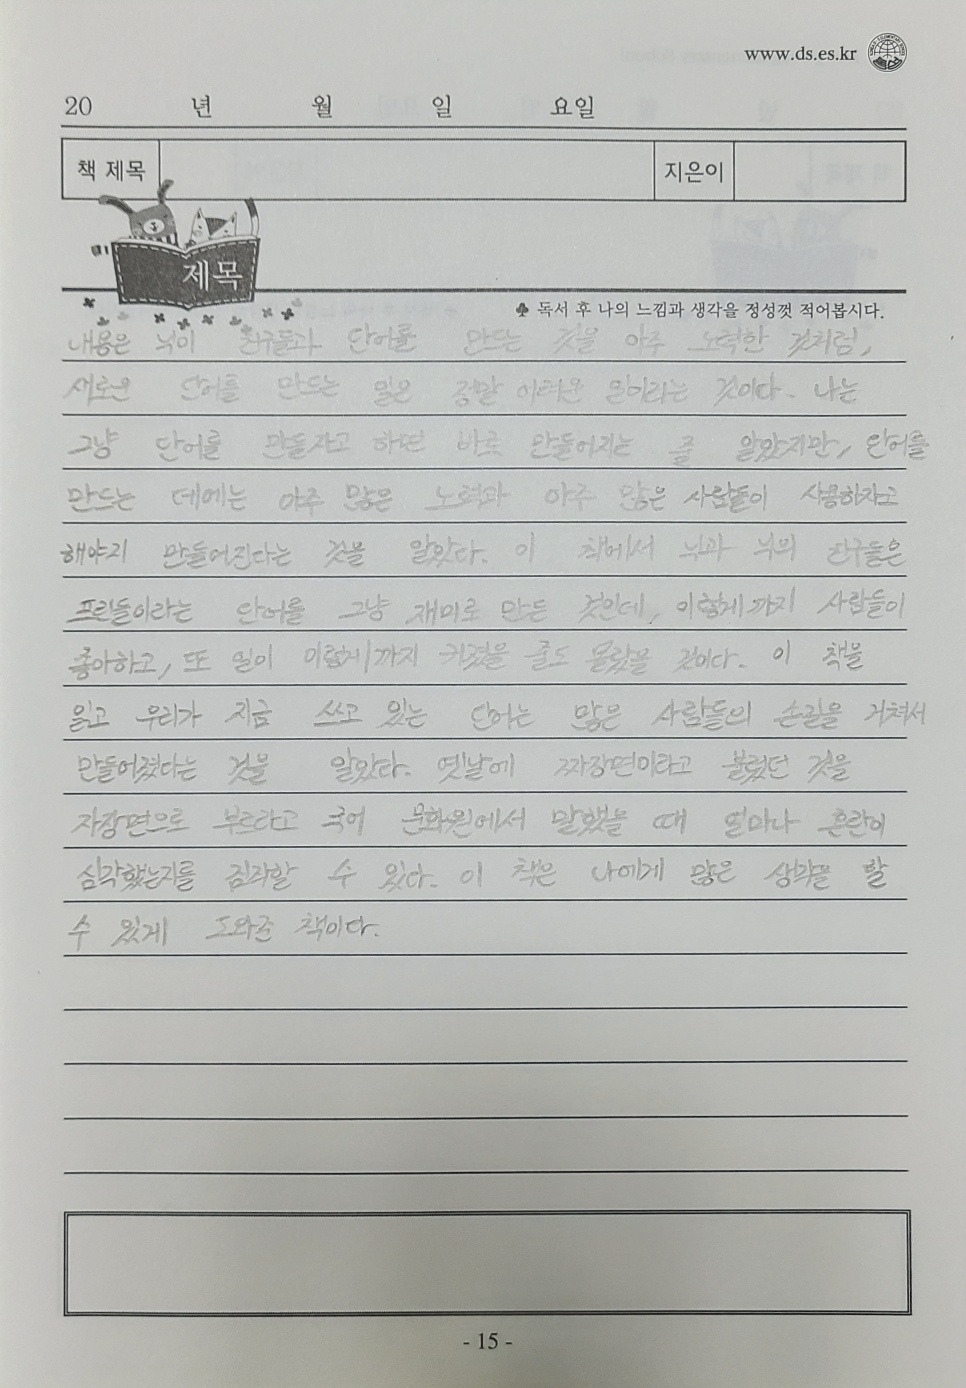 www.ds.es.kr
20 년 월 일 요일
책 제목 지은이
제목
♣ 독서 후 나의 느낌과 생각을 정성껏 적어봅시다.
내용은 닉이 친구들과 단어를 만드는 것을 아주 노력한 것처럼,
새로운 단어를 만드는 일은 정말 어려운 일이라는 것이다. 나는
그냥 단어를 만들자고 하면 바로 만들어지는 줄 알았지만, 단어를
만드는 데에는 아주 많은 노력과 아주 많은 사람들이 사용하자고
해야지 만들어진다는 것을 알았다. 이 책에서 닉과 닉의 친구들은
프린들이라는 단어를 그냥 재미로 만든 것인데, 이렇게까지 사람들이
좋아하고, 또 일이 이렇게까지 커졌을 줄도 몰랐을 것이다. 이 책을
읽고 우리가 지금 쓰고 있는 단어는 많은 사람들의 손길을 거쳐서
만들어졌다는 것을 알았다. 옛날에 짜장면이라고 불렀던 것을
자장면으로 부르라고 국어 문화원에서 말했을 때 얼마나 혼란이
심각했는지를 짐작할 수 있다. 이 책은 나에게 많은 생각을 할
수 있게 도와준 책이다.
- 15 -